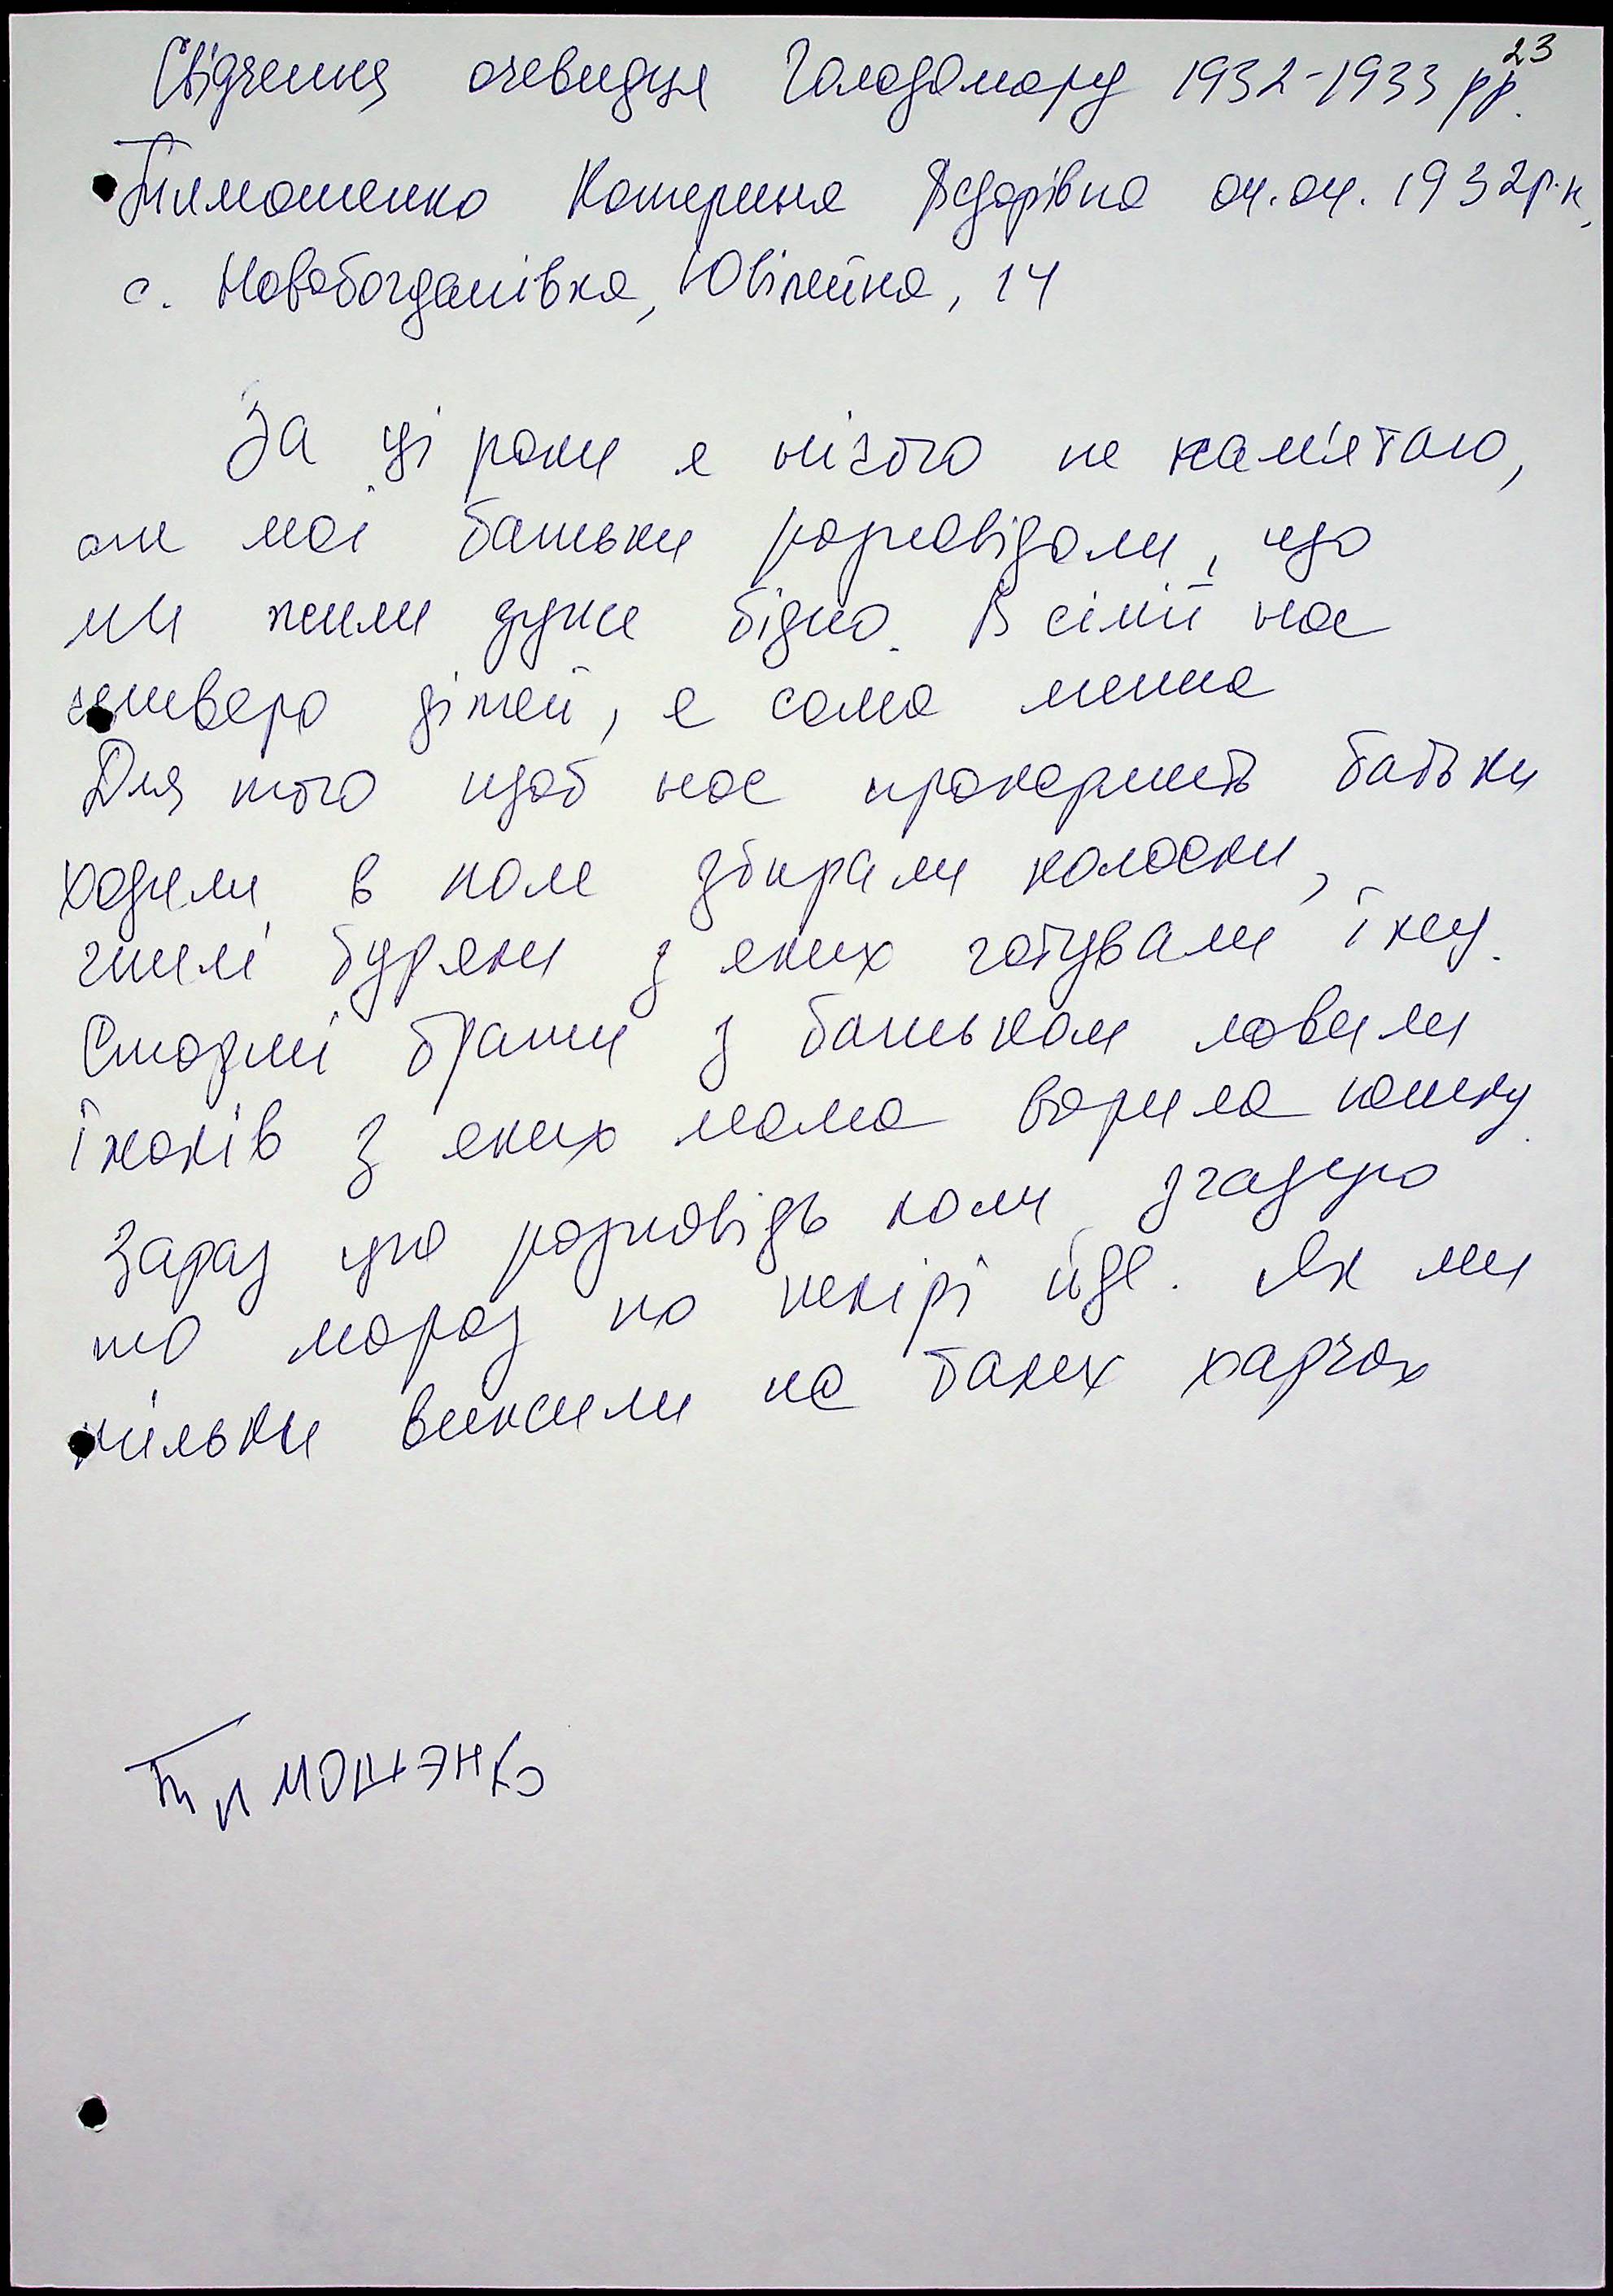 23
Свідчення очевидця Голодомору 1932-1933 рр.
Тимошенко Катерина Федорівна 04.04.1932р.н,
с. Новобогданівка, Ювілейна, 14
За ці роки я нічого не пам'ятаю,
але мої батьки розповідали, що
ми жили дуже бідно. В сімії нас
четверо дітей, я сама менша
Для того щоб нас прокормить батьки
ходили в поле збирали колоски,
гнилі буряки з яких готували їжу.
Старші брати з батьком ловили
їжаків з яких мама варила юшку.
Зараз цю розповідь коли згадую
то мороз по шкірі йде. Як ми
тільки вижили на таких харчах
Тимошэнко